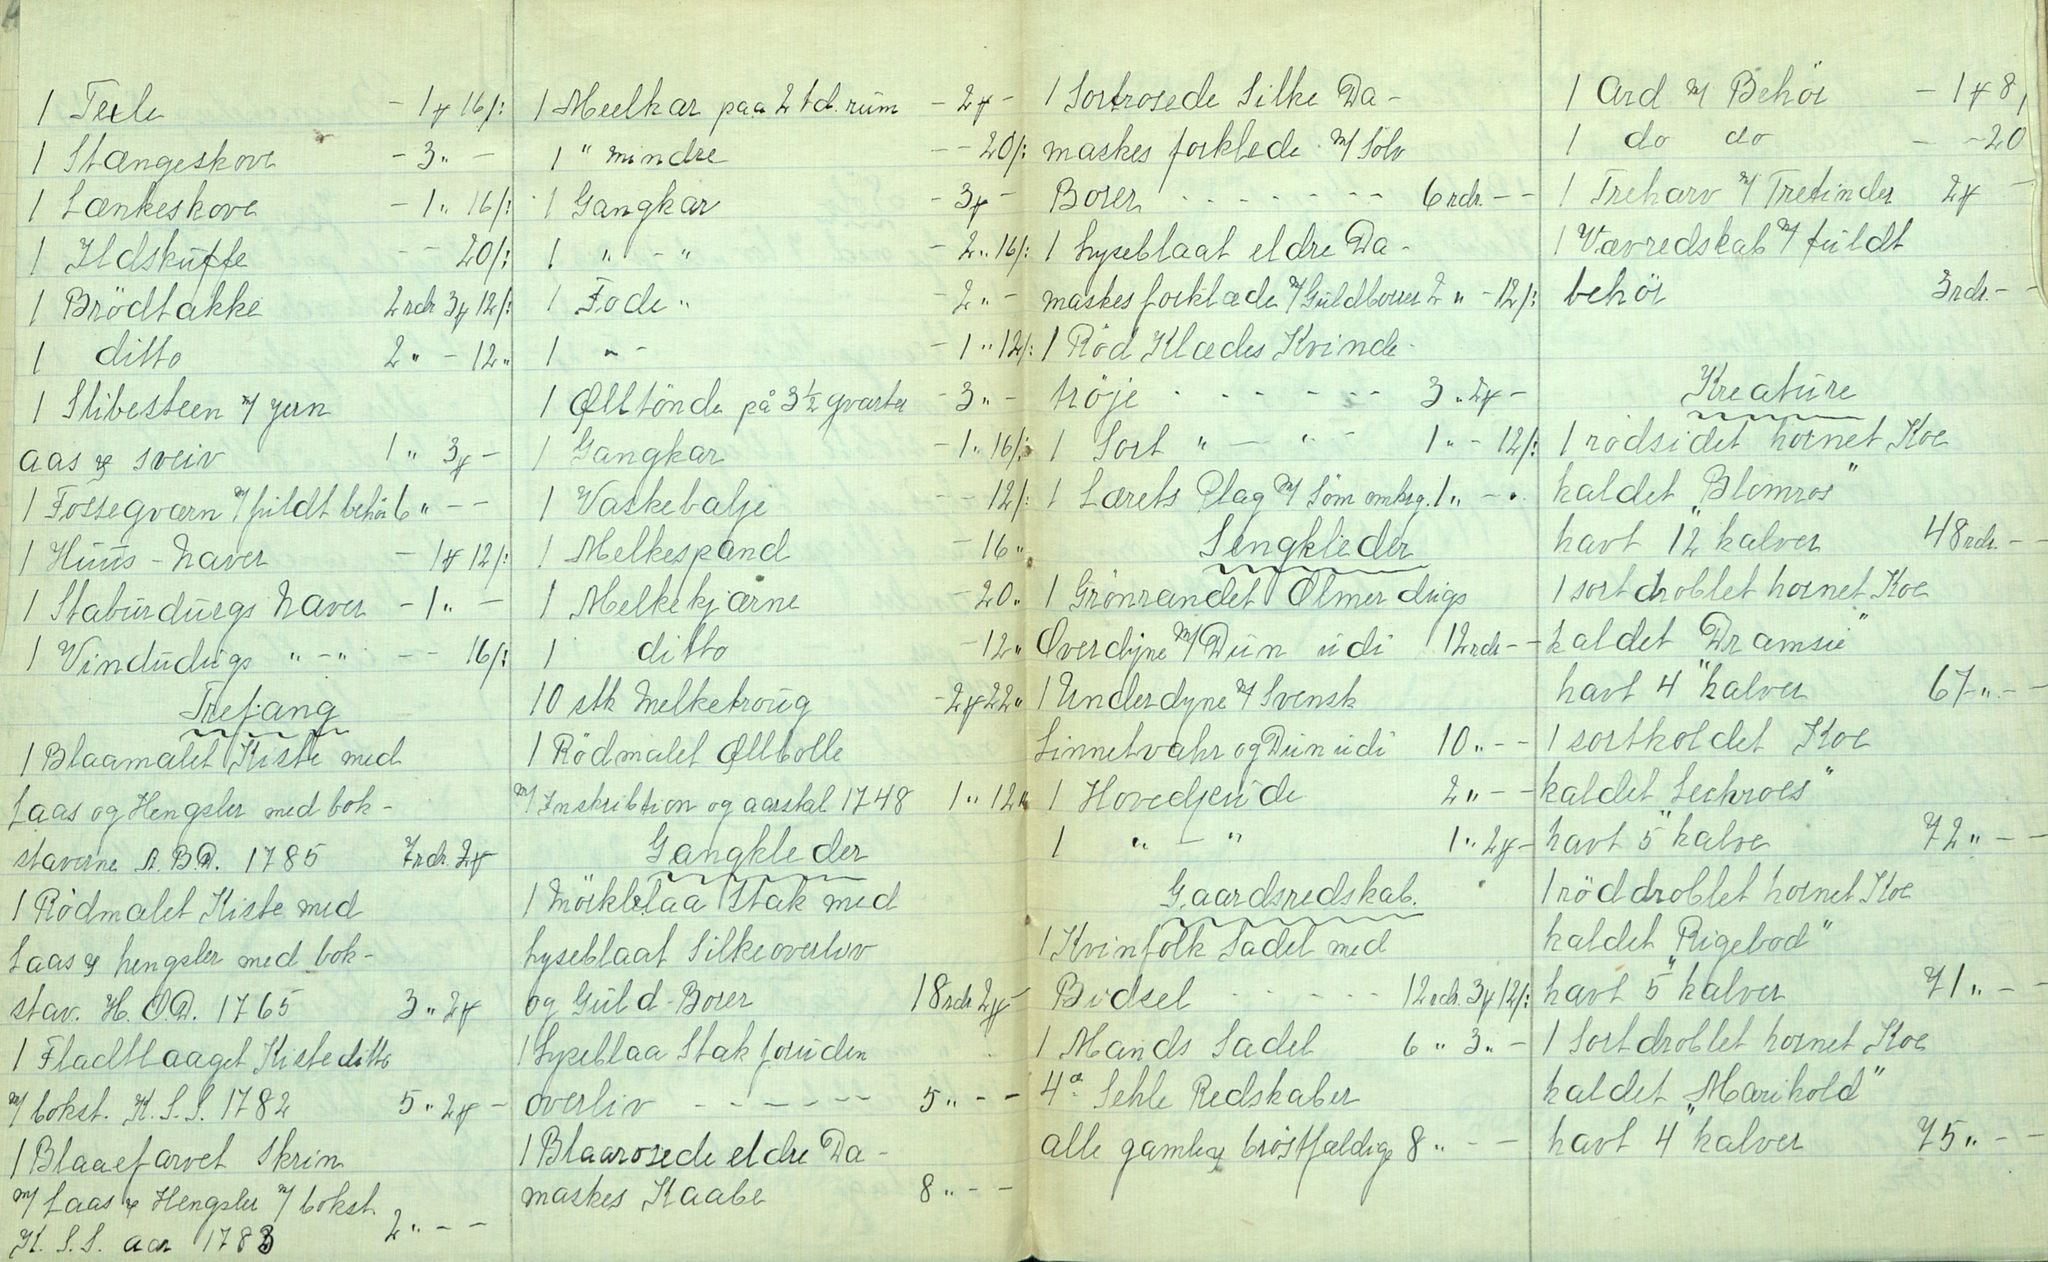 1 Texle - 1 ort 16/:
1 Stangeskovl - 3 „ -
1 Lænkeskovl - 1 „ 16/:
1 Ildskuffe - - 20/:
1 Brödtakke 2 rdr 3 ort 12/:
1 ditto 2 „ - 12 „
1 Slibesteen m/ jern
aas & sveiv 1 „ 3 ort -
1 Fossegværn m/ fuldt behör 6 „ - -
1 Huus-Naver - 1 ort 12/:
1 Staburdurgs Naver - 1 „ -
1 Vindudugs „ - „ - - 16/:
Trefang
1 Blaamalet Kiste med
Laas og Hengsler med bok-
staverne A.B.D. 1785 7 rdr 2 ort
1 Rödmalet Kiste med
Laas & hengsler med bok-
stav. H.O.D. 1765 3 „ 2 ort
1 Fladtlaaget Kiste ditto
m/ bokst. K.S.S. 1782 5 „ 2 ort -
1 Blaaefarvet Skrin
m/ Laas & Hengsler m/ bokst.
K.S.S. aar 1783 2 „ - -
1 Meelkar paa 2 td. rum - 2 ort -
1 „ mindre - - 20/:
1 Gangkar - 3 ort -
1 „ - „ - 2 „ 16/:
1 Fode „ - 2 „ -
1 „ - - 1 „ 12/:
1 Ølltönde på 3½ qvarter - 3 „ -
1 Gangkar - 1 „ 16/:
1 Vaskebalje - - 12/:
1 Melkespand - 16 „
1 Melkekjærne - 20 „
1 ditto - 12 „
10 stk Melketroug - 2 ort 22 „
1 Rödmalet Øllbolle
m/ Inskribtion og aarstal 1748 1 „ 12 „
Gangkleder
1 Mörkblaa Stak med
Lyseblaat Silkeoverliv
og Guld-Borer 18 rdr 2 ort
1 Lyseblaa Stak foruden
overliv - - - - - - 5 „ - -
1 Blaarosede eldre Da-
maskes Kaabe 8 „ - -
1 Sortrosede Silke Da-
maskes forklede m/ Sölv
Borer - - - - - - - 6 rdr. - -
1 Lyseblaat eldre Da-
maskes forklæde m/ Guldborer 2 „ - 12/:
1 Röd Klædes Kvinde-
tröje - - - - - - - 3 „ 2 ort -
1 Sort „ - „ - 1 „ - 12/:
1 Lærets Plag m/ Söm omkrg. 1 „ - -
Sengkleder
1 Grönrandet Olmerdugs
Overdyne m/ Dun udi 12 rdr - -
1 Underdyne m/ Svensk
Linnetvahr og Dun udi 10 „ - -
1 Hovedpude 2 „ - -
1 „ - „ 1 „ 2 ort -
Gaardsredskab.
1 Kvinfolk Sadel med
Bidsel - - - - - 12 rdr. 3 ort 12/:
1 Mands Sadel 6 „ 3 „ -
4a Sehle Redskaber
alle gamle & bröstfældige 8 „ - -
1 Ard m/ Behör - 1 ort 8/
1 do do - - 20
1 Treharv m/ Tretinder 2 ort -
1 Vævredskab m/ fuldt
behör 3 rdr. - -
Kreature
1 rödsidet hornet Koe
kaldet "Blomros"
havt 12 kalver 48 rdr. - -
1 sortdroblet hornet Koe
kaldet "Dramsie"
havt 4 kalver 67 „ - -
1 sortkoldet Koe
kaldet "Lechroes"
havt 5 kalve 72 „ - -
1 röddroblet hornet Koe
kaldet "Rigebod"
havt 5 kalver 71 „ - -
1 Sortdroblet hornet Koe
kaldet "Marihold"
havt 4 kalver 75 „ - -